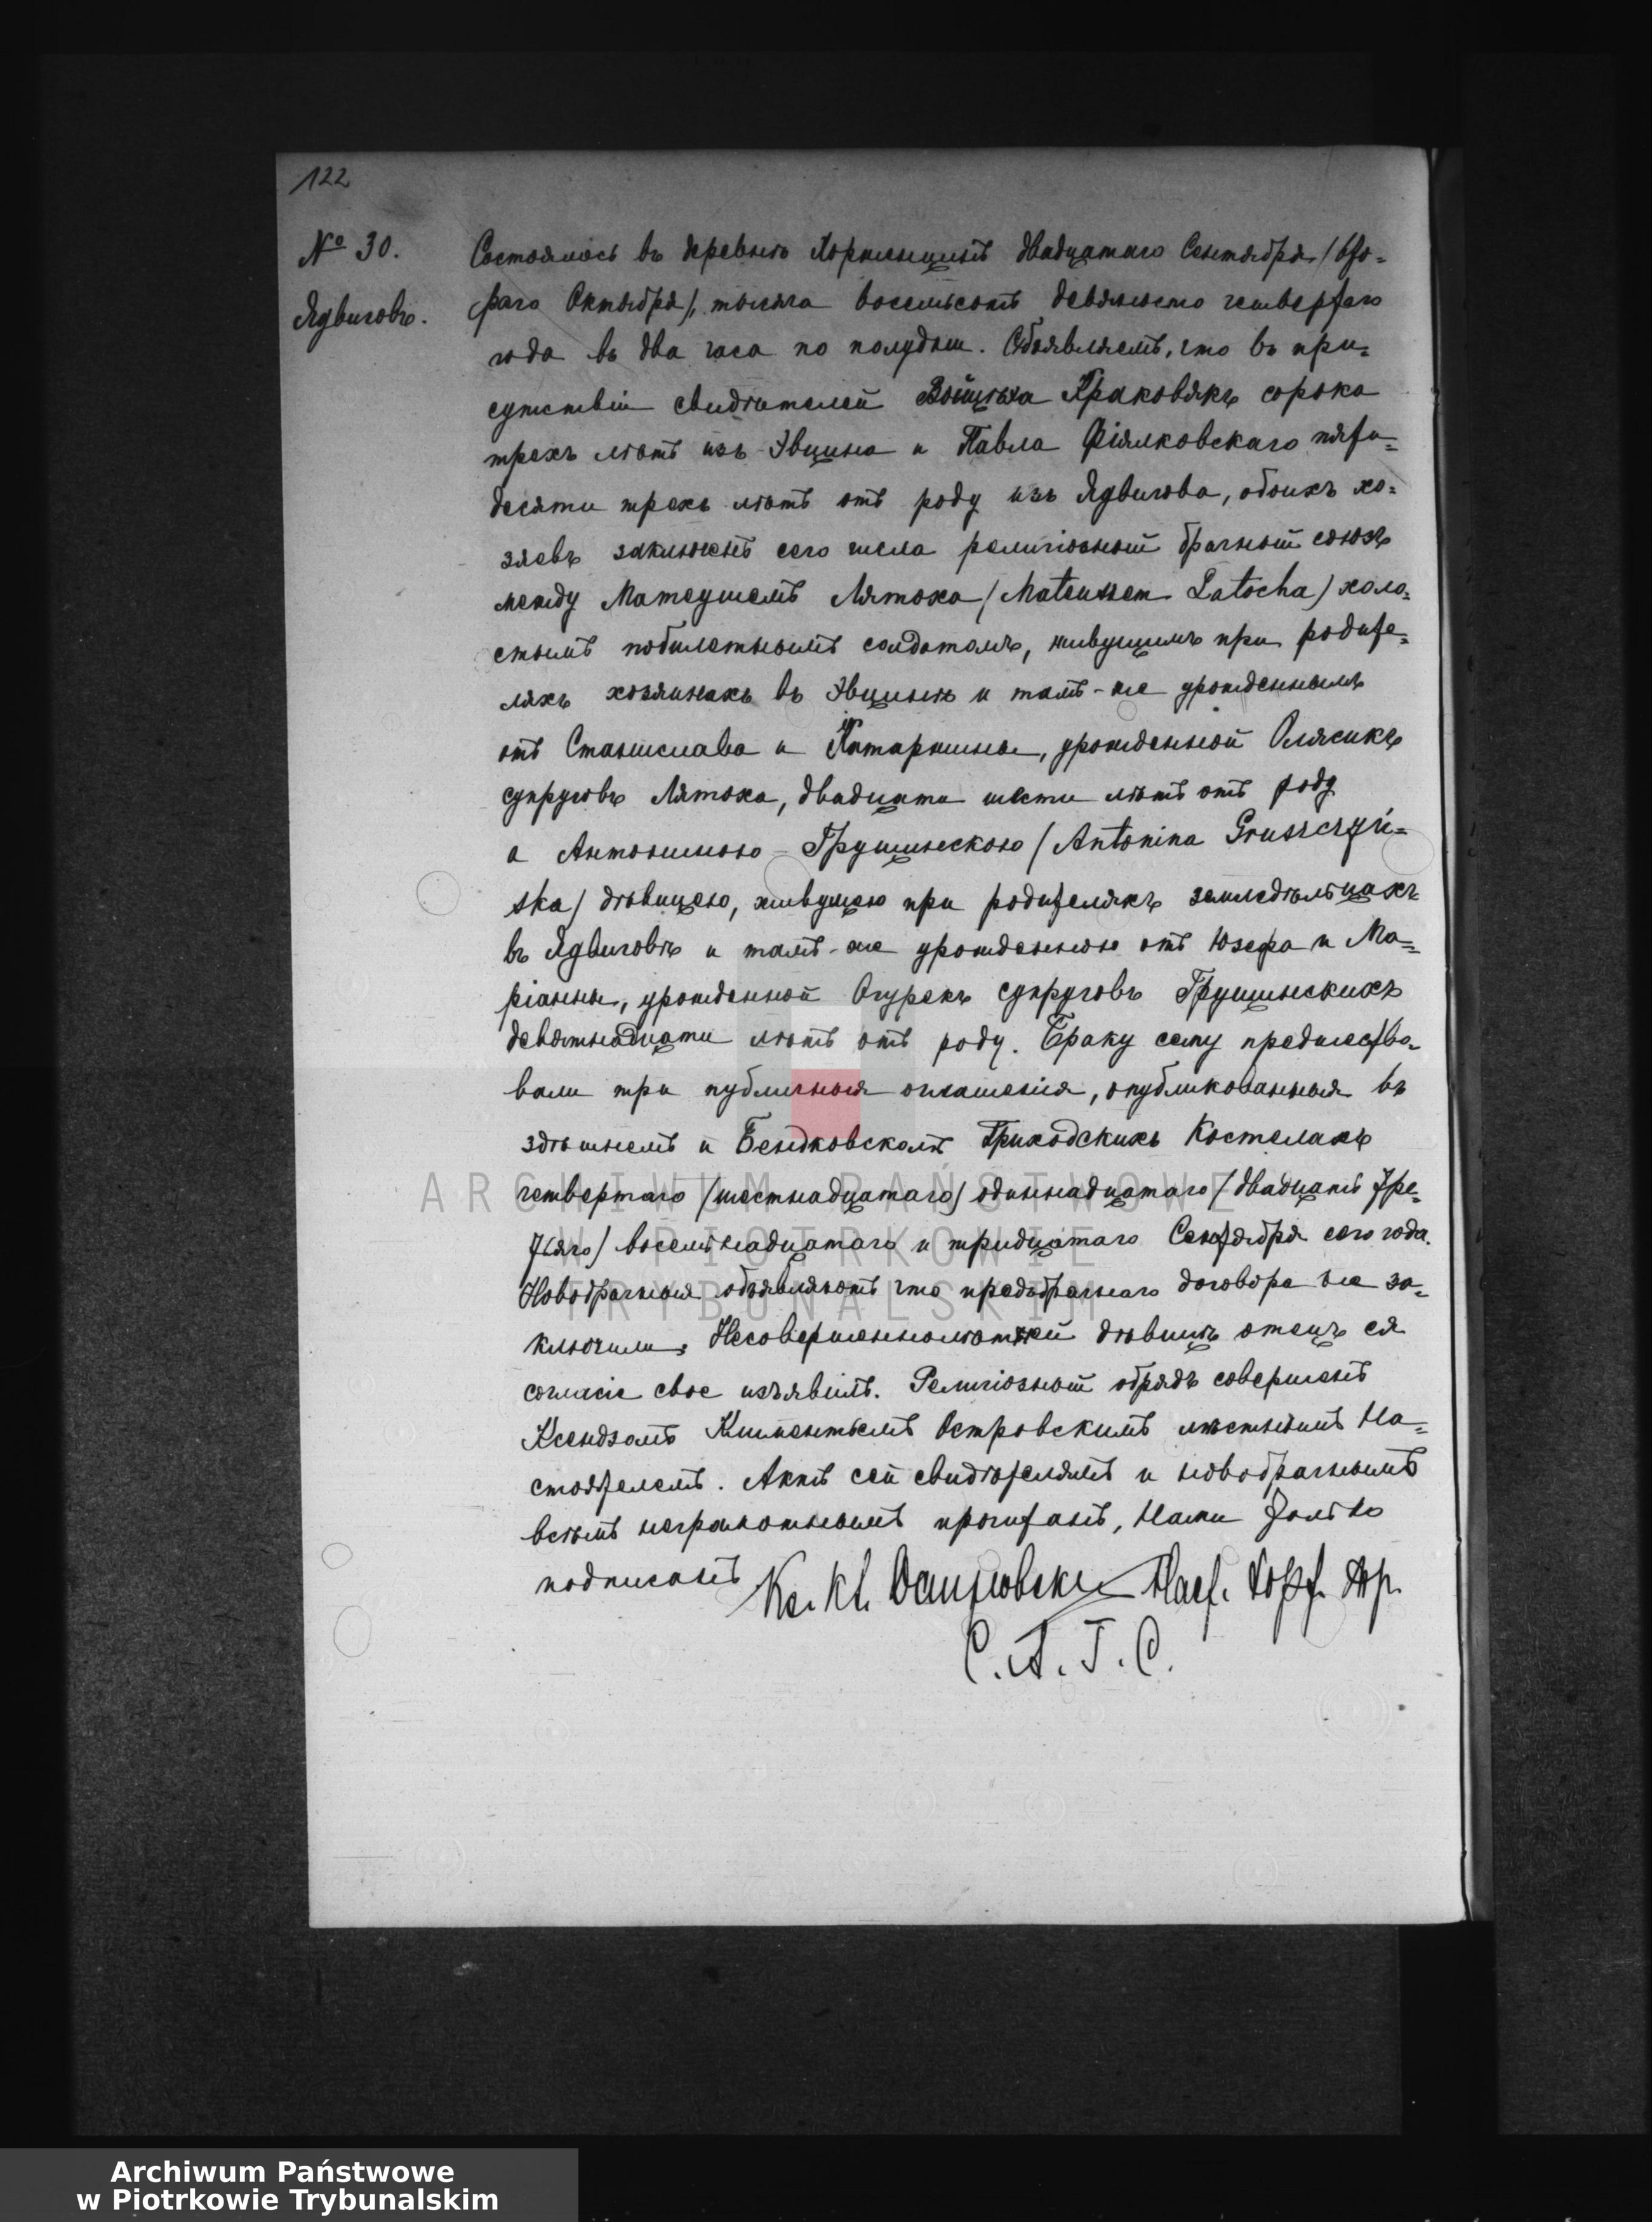 122
№ 30.
Ядвиговъ.
Состоялось въ деревнѣ двадцатаго Сентября /вто=
раго Октября/ тысяча восемьсотъ девяносто четвертаго
года въ два часа по полудни. Объявляемъ, что въ при=
сутствіи свидѣтелей Войцѣха Краковякъ сорока
трехъ лѣтъ изъ Эвцина и Павла Фіялковскаго пяти=
десяти трехъ лѣтъ отъ роду изъ Ядвигова, обоихъ хо=
зяевъ заключенъ сего числа религіозный брачный союзъ
между Матеушемъ Лятоха /Mateuszem Latocha/ холо=
стымъ побилетнымъ солдатомъ, живущимъ при родите=
ляхъ хозяинахъ въ Эвцинѣ и тамъ-же урожденнымъ
отъ Станислава и Катаржины, урожденной Олясикъ
супруговъ Лятоха, двадцати шести лѣтъ отъ роду
а Антониною Грущинскою /Antonina Gruszczyń=
ska/ дѣвицею, живущею при родителяхъ земледѣльцахъ
въ Ядвиговѣ и тамъ-же урожденною отъ Юзефа и Ма=
ріанны, урожденной Огурекъ супруговъ Грущинскихъ
девятнадцати лѣтъ отъ роду. Браку сему предшество=
вали три публичныя оглашенія, опубликованныя въ
здѣшнемъ и Бендковскомъ Приходскихъ Костелахъ
четвертаго /шестнадцатаго/ одиннадцатаго /двадцать тре=
тьяго/ восемнадцатаго и тридцатаго Сентября сего года.
Новобрачныя объявляютъ что предбрачнаго договора не за=
ключили. Несовершеннолѣтней дѣвицѣ отецъ ея
согласіе свое изъявилъ. Религіозный обрядъ совершенъ
Ксендзомъ Климентьемъ Островскимъ мѣстнымъ На=
стоятелемъ. Актъ сей свидѣтелямъ и новобрачнымъ
всѣмъ неграмотнымъ прочитанъ, Нами только
подписанъ Кс. Кл. Островскій Наст.
С. А. Г. С.
ARCHIWUM PAŃSTWOWE
W PIOTRKOWIE
TRYBUNALSKIM
Archiwum Państwowe
w Piotrkowie Trybunalskim